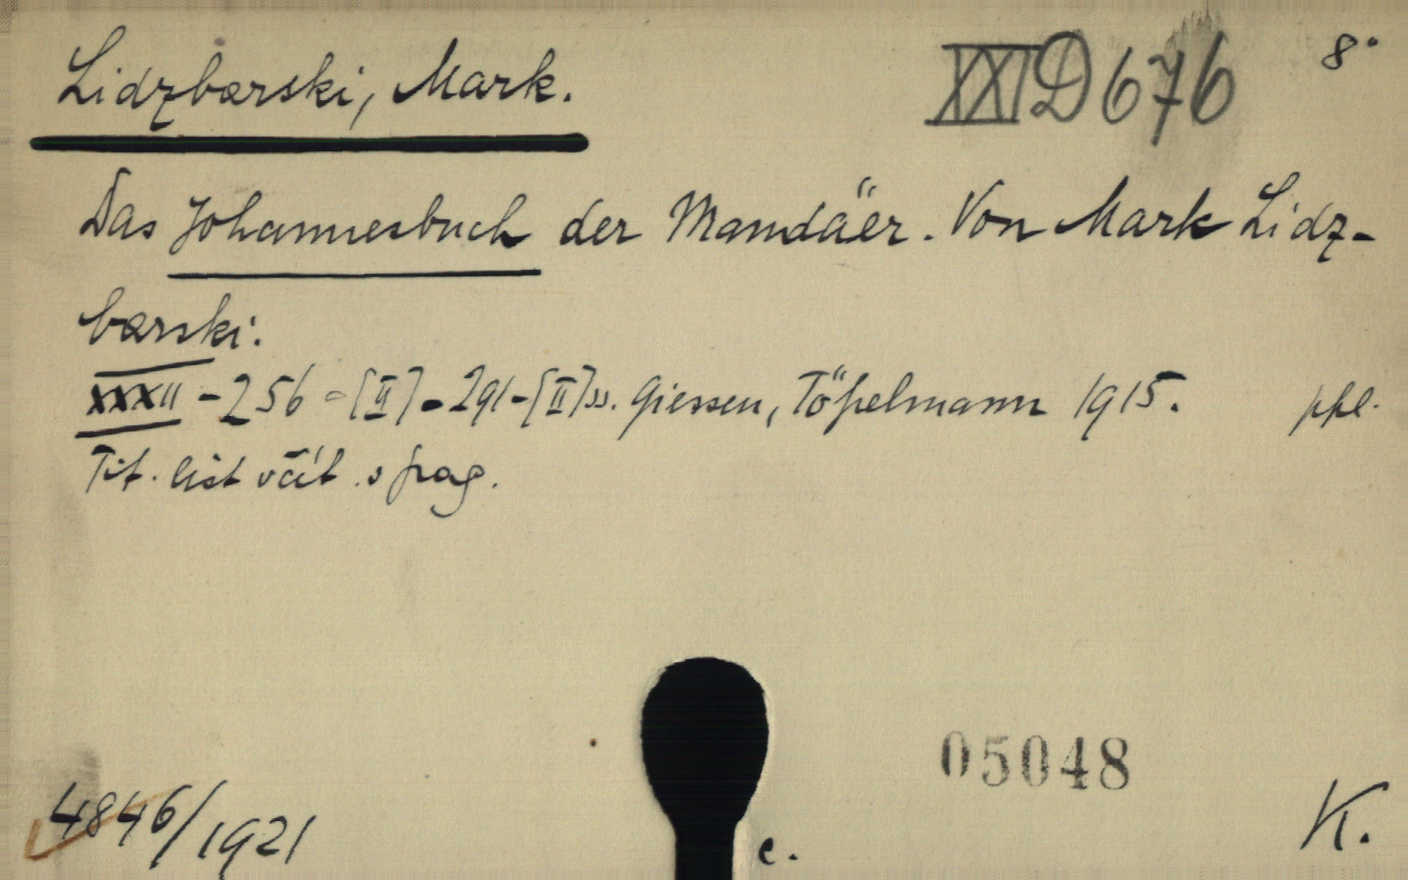 Lidzbarski, Mark.
XXI D 676
8°
Das Johannesbuch der Mandäer. Von Mark Lidz-
barski.
XXXII - 256 - [II] - 291 - [II] ss. Giessen, Töpelmann 1915. ppl.
Tit. list včít. s pag.
05048
4846/1921
c.
K.